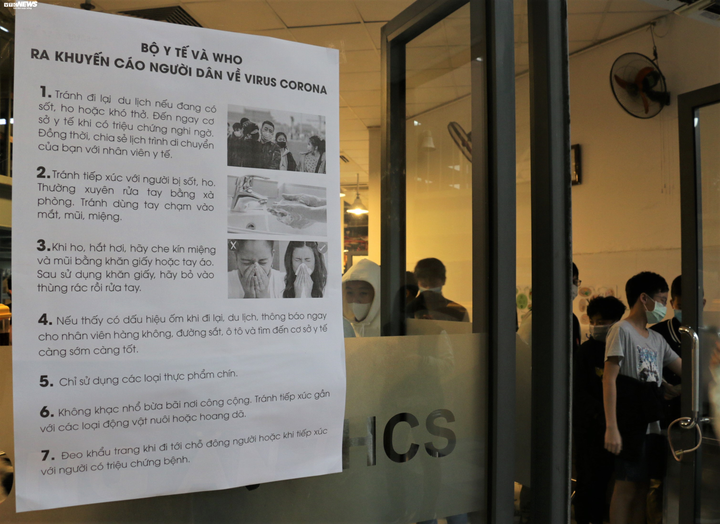 NEWS
BỘ Y TẾ VÀ WHO
RA KHUYẾN CÁO NGƯỜI DÂN VỀ VIRUS CORONA
1. Tránh đi lại du lịch nếu đang có
sốt, ho hoặc khó thở. Đến ngay cơ
sở y tế khi có triệu chứng nghi ngờ.
Đồng thời, chia sẻ lịch trình di chuyển
của bạn với nhân viên y tế.
2. Tránh tiếp xúc với người bị sốt, ho.
Thường xuyên rửa tay bằng xà
phòng. Tránh dùng tay chạm vào
mắt, mũi, miệng.
3. Khi ho, hắt hơi, hãy che kín miệng
và mũi bằng khăn giấy hoặc tay áo.
Sau sử dụng khăn giấy, hãy bỏ vào
thùng rác rồi rửa tay.
X
4. Nếu thấy có dấu hiệu ốm khi đi lại, du lịch, thông báo ngay
cho nhân viên hàng không, đường sắt, ô tô và tìm đến cơ sở y tế
càng sớm càng tốt.
5. Chỉ sử dụng các loại thực phẩm chín.
6. Không khạc nhổ bừa bãi nơi công cộng. Tránh tiếp xúc gần
với các loại động vật nuôi hoặc hoang dã.
7. Đeo khẩu trang khi đi tới chỗ đông người hoặc khi tiếp xúc
với người có triệu chứng bệnh.
HICS